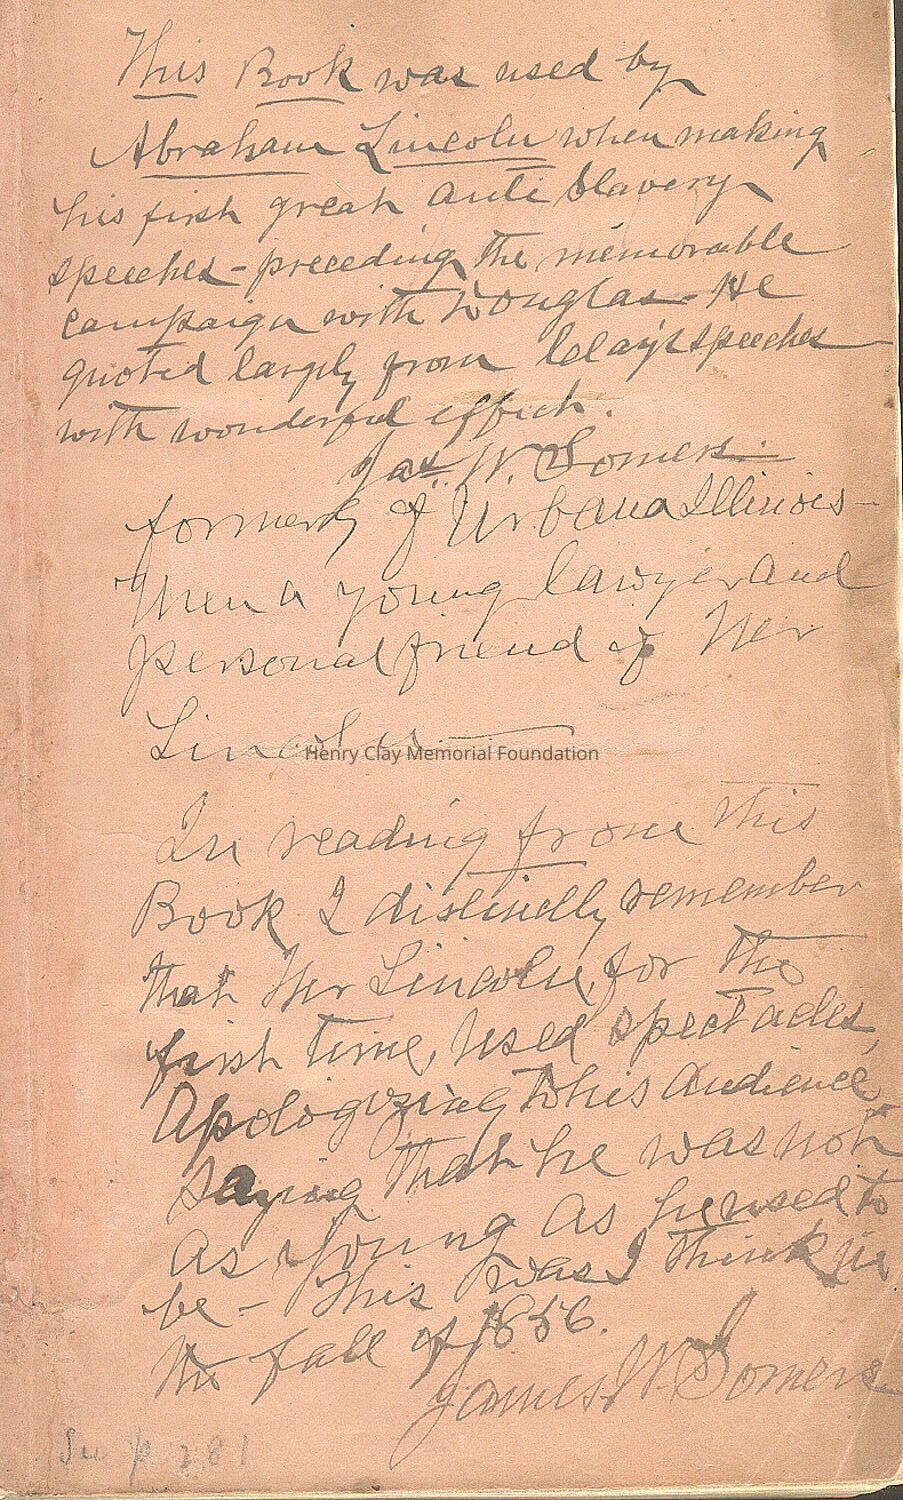 This Book was used by
Abraham Lincoln when making
his first great anti Slavery
speeches - preceding the memorable
campaign with Douglas - He
quoted largely from Clay's speeches
with wonderful effect.
Jas. W. Somers.
formerly of Urbana Illinois -
Then a young lawyer and
personal friend of Mr
Lincoln
Henry Clay Memorial Foundation
In reading from this
Book I distinctly remember
that Mr Lincoln, for the
first time, used spectacles,
Apologizing to his Audience,
saying that he was not
as young as he used to
be - This was I think in
the fall of 1856.
James W. Somers
See p 281